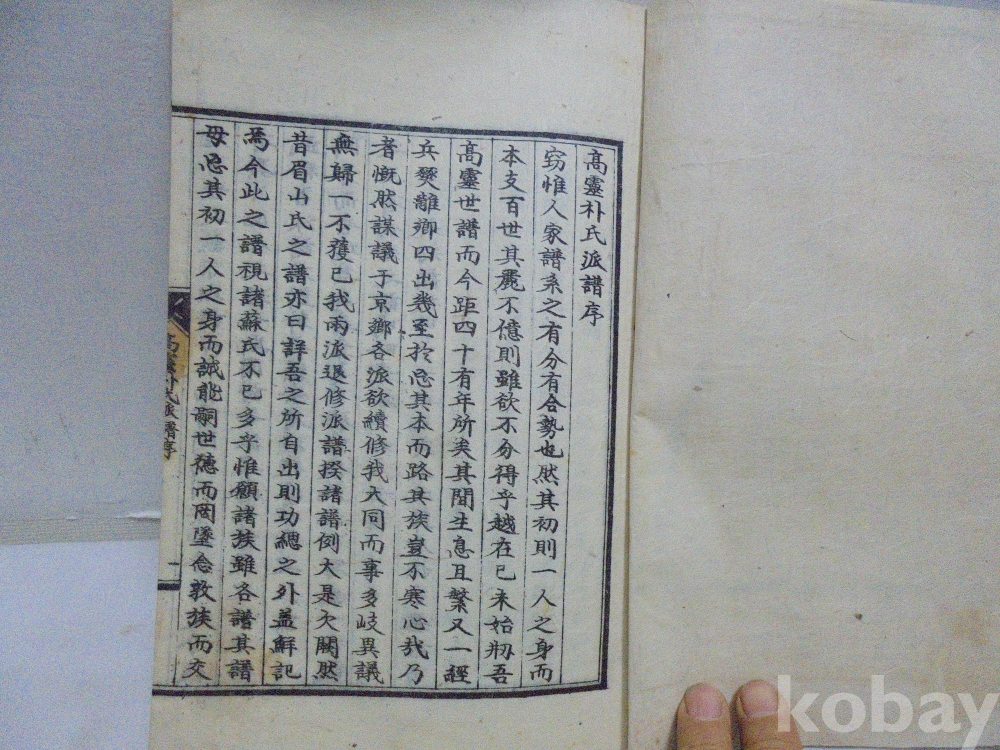 高靈朴氏派譜序
窃惟人家譜系之有分有合勢也然其初則一人之身而
本支百世其麗不億則雖欲不分得乎越在己未始刱吾
高靈世譜而今距四十有年所矣其間生息且繁又一經
兵燹離鄉四出幾至於忘其本而路其族豈不寒心哉乃
者慨然謀議于京鄉各派欲續修我大同而事多岐異議
無歸一不獲已我兩派退修派譜揆諸譜例大是欠闕然
昔眉山氏之譜亦曰詳吾之所自出則功緦之外盖鮮記
焉今此之譜視諸蘇氏不已多乎惟願諸族雖各譜其譜
毋忘其初一人之身而誠能嗣世德而罔墜念敦族而交
高靈朴氏派譜序
一
kobay